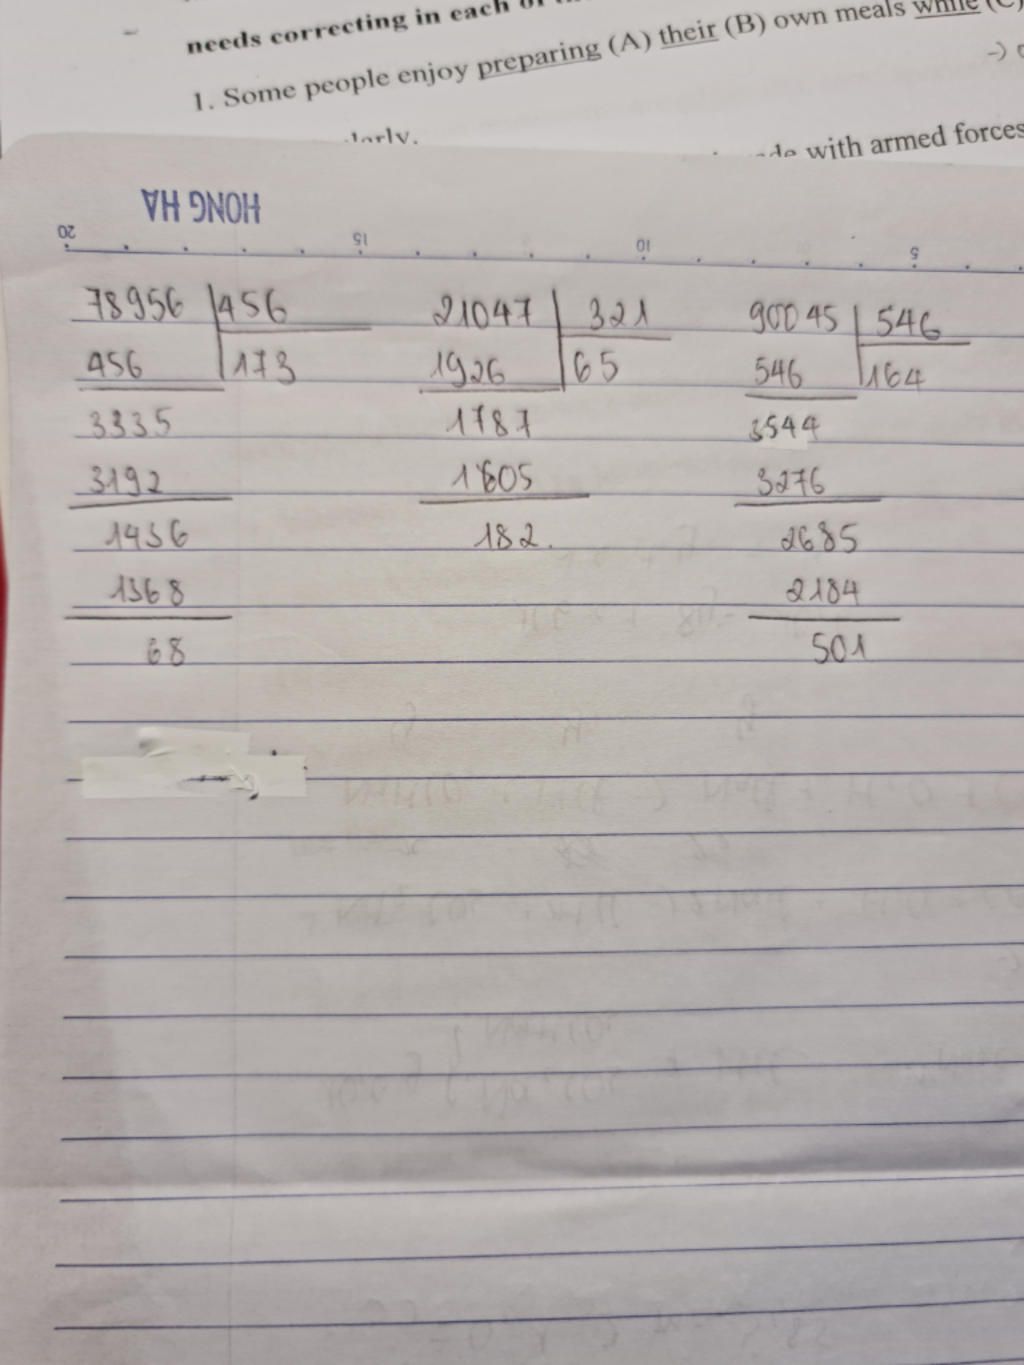 needs correcting in each
1. Some people enjoy preparing (A) their (B) own meals while (C)
with armed forces
HONG HA
20 15 10 5
78956 456
456 173
3335
3192
1436
1368
68
21047 321
1926 65
1787
1605
182.
90045 546
546 164
3544
3276
2685
2184
501